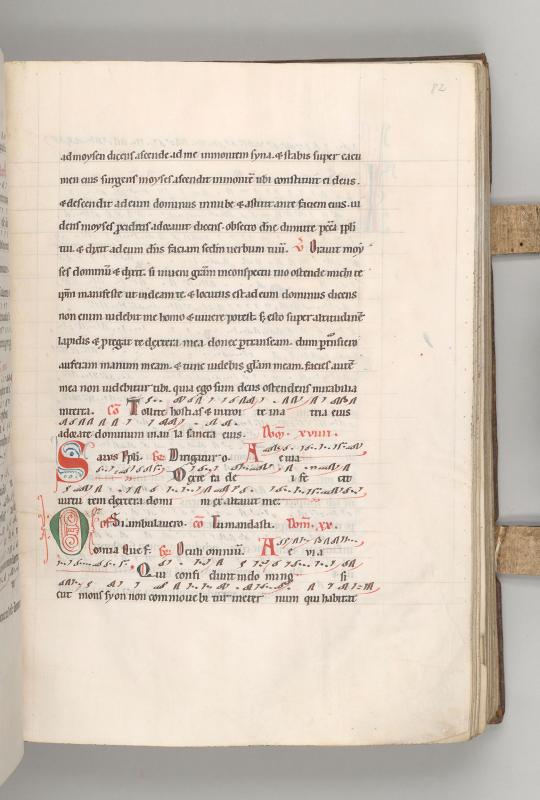 82
ad moysen dicens ascende ad me in montem syna. & stabis super cacu
men eius surgens moyses ascendit in monte ubi constituit ei deus.
& descendit ad eum dominus in nube & astitit ante faciem eius. ui
dens moyses pcidens adorauit dicens. obsecro dne dimitte pcca ppli
tui. & dixit ad eum dns faciam scdm uerbum tuu. V Orauit moy
ses dominu & dixit. si inueni gram in conspectu tuo ostende michi te
ipm manifeste ut uideam te. & locutus est ad eum dominus dicens
non enim uidebit me homo & uiuere potest. sed esto super altitudine
lapidis & proteget te dextera mea donec pertranseam. dum ptransiero
auferam manum meam. & tunc uidebis glam meam. facies aute
mea non uidebitur tibi. quia ego sum deus ostendens mirabilia
in terra. Co Tollite hostias & introi te in a tria eius
adorate dominum in au la sancta eius. Dom. xviiii.
Salus ppli. Dirigatur o. A e uia
Dexte ra de i fe cit
uirtu tem dextera domi ni exaltauit me.
Si ambulauero. Co In mandasti. Dom. xx.
Omnia que f. Oculi omniu. A e uia
Qui confi dunt in do mino si
cut mons syon non commoue bi tur in eter num qui habitat